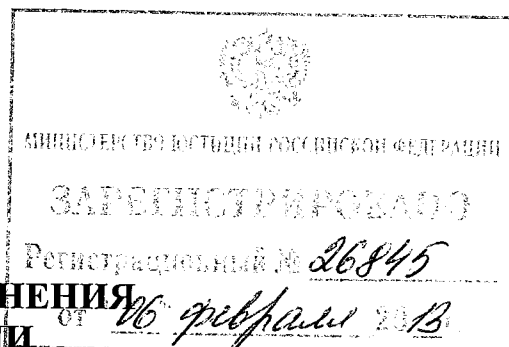 МИНИСТЕРСТВО ЮСТИЦИИ РОССИЙСКОЙ ФЕДЕРАЦИИ
ЗАРЕГИСТРИРОВАНО
Регистрационный № 26845
НЕНИЯ
от 06 февраля 2013
И